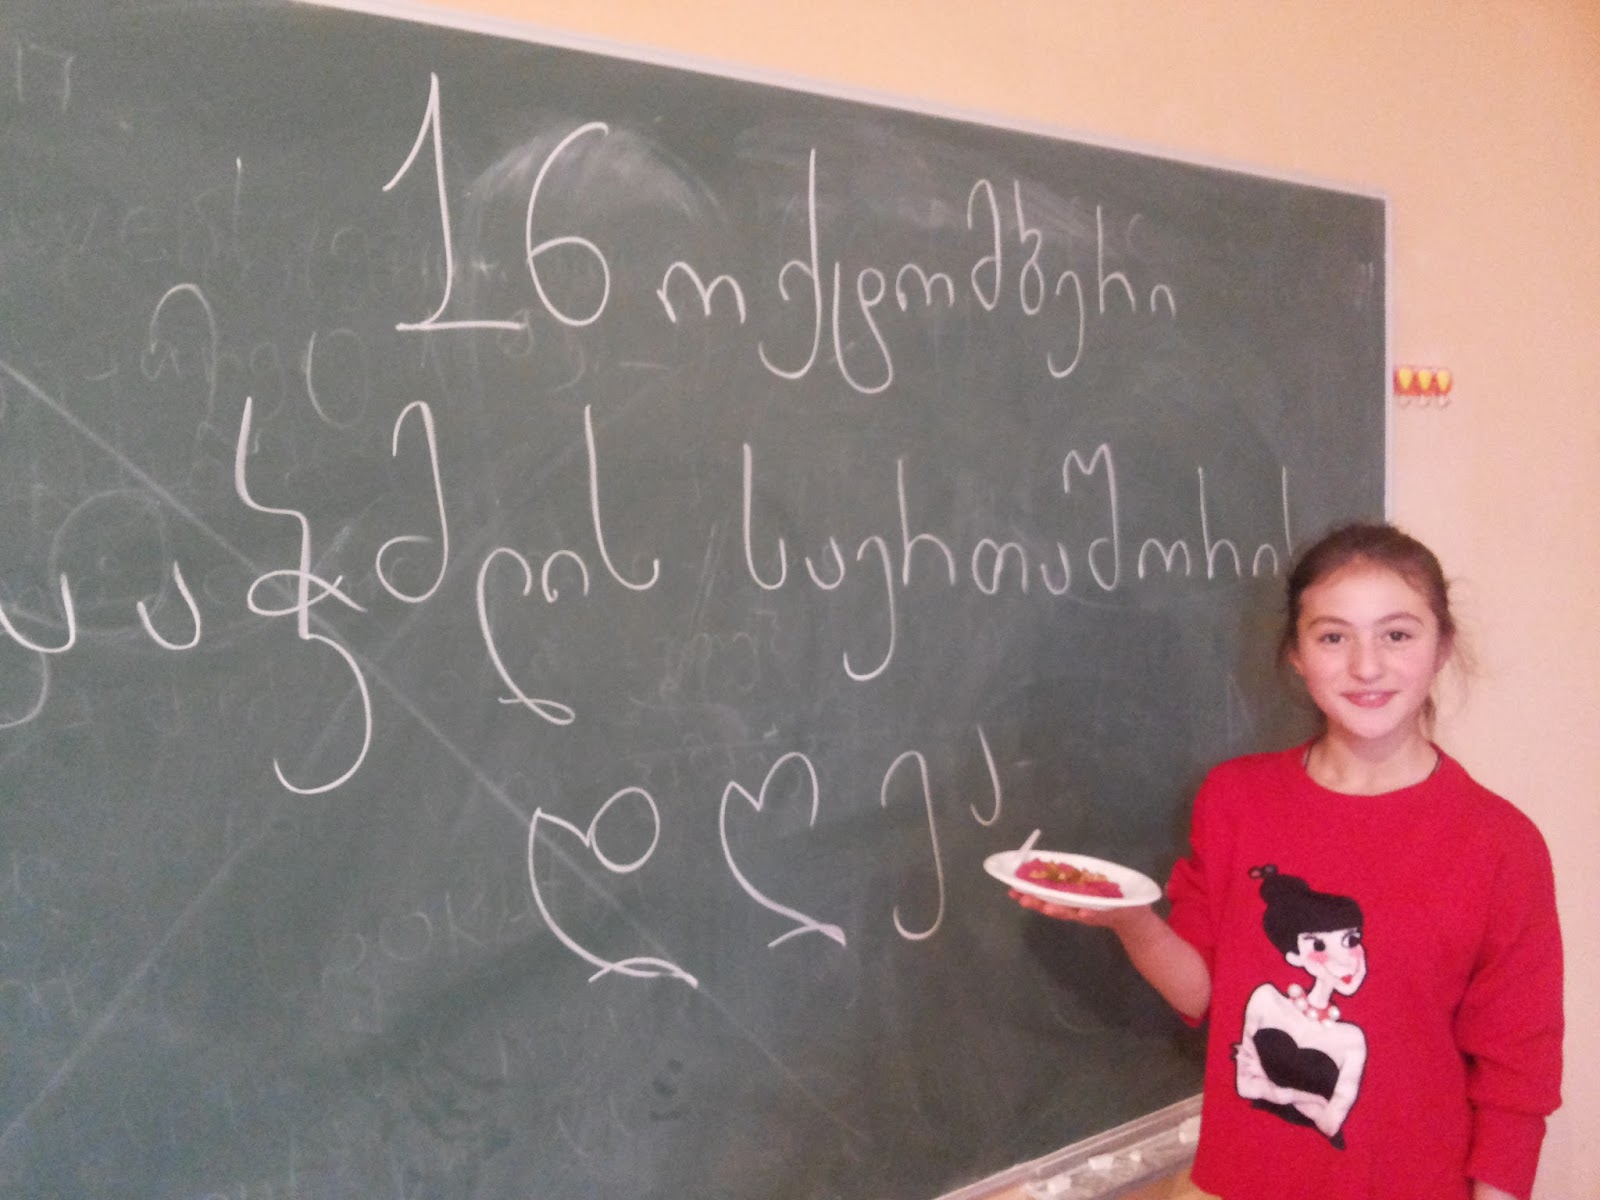 16 ოქტომბერი
საჭმლის საერთაშორის
დღეა